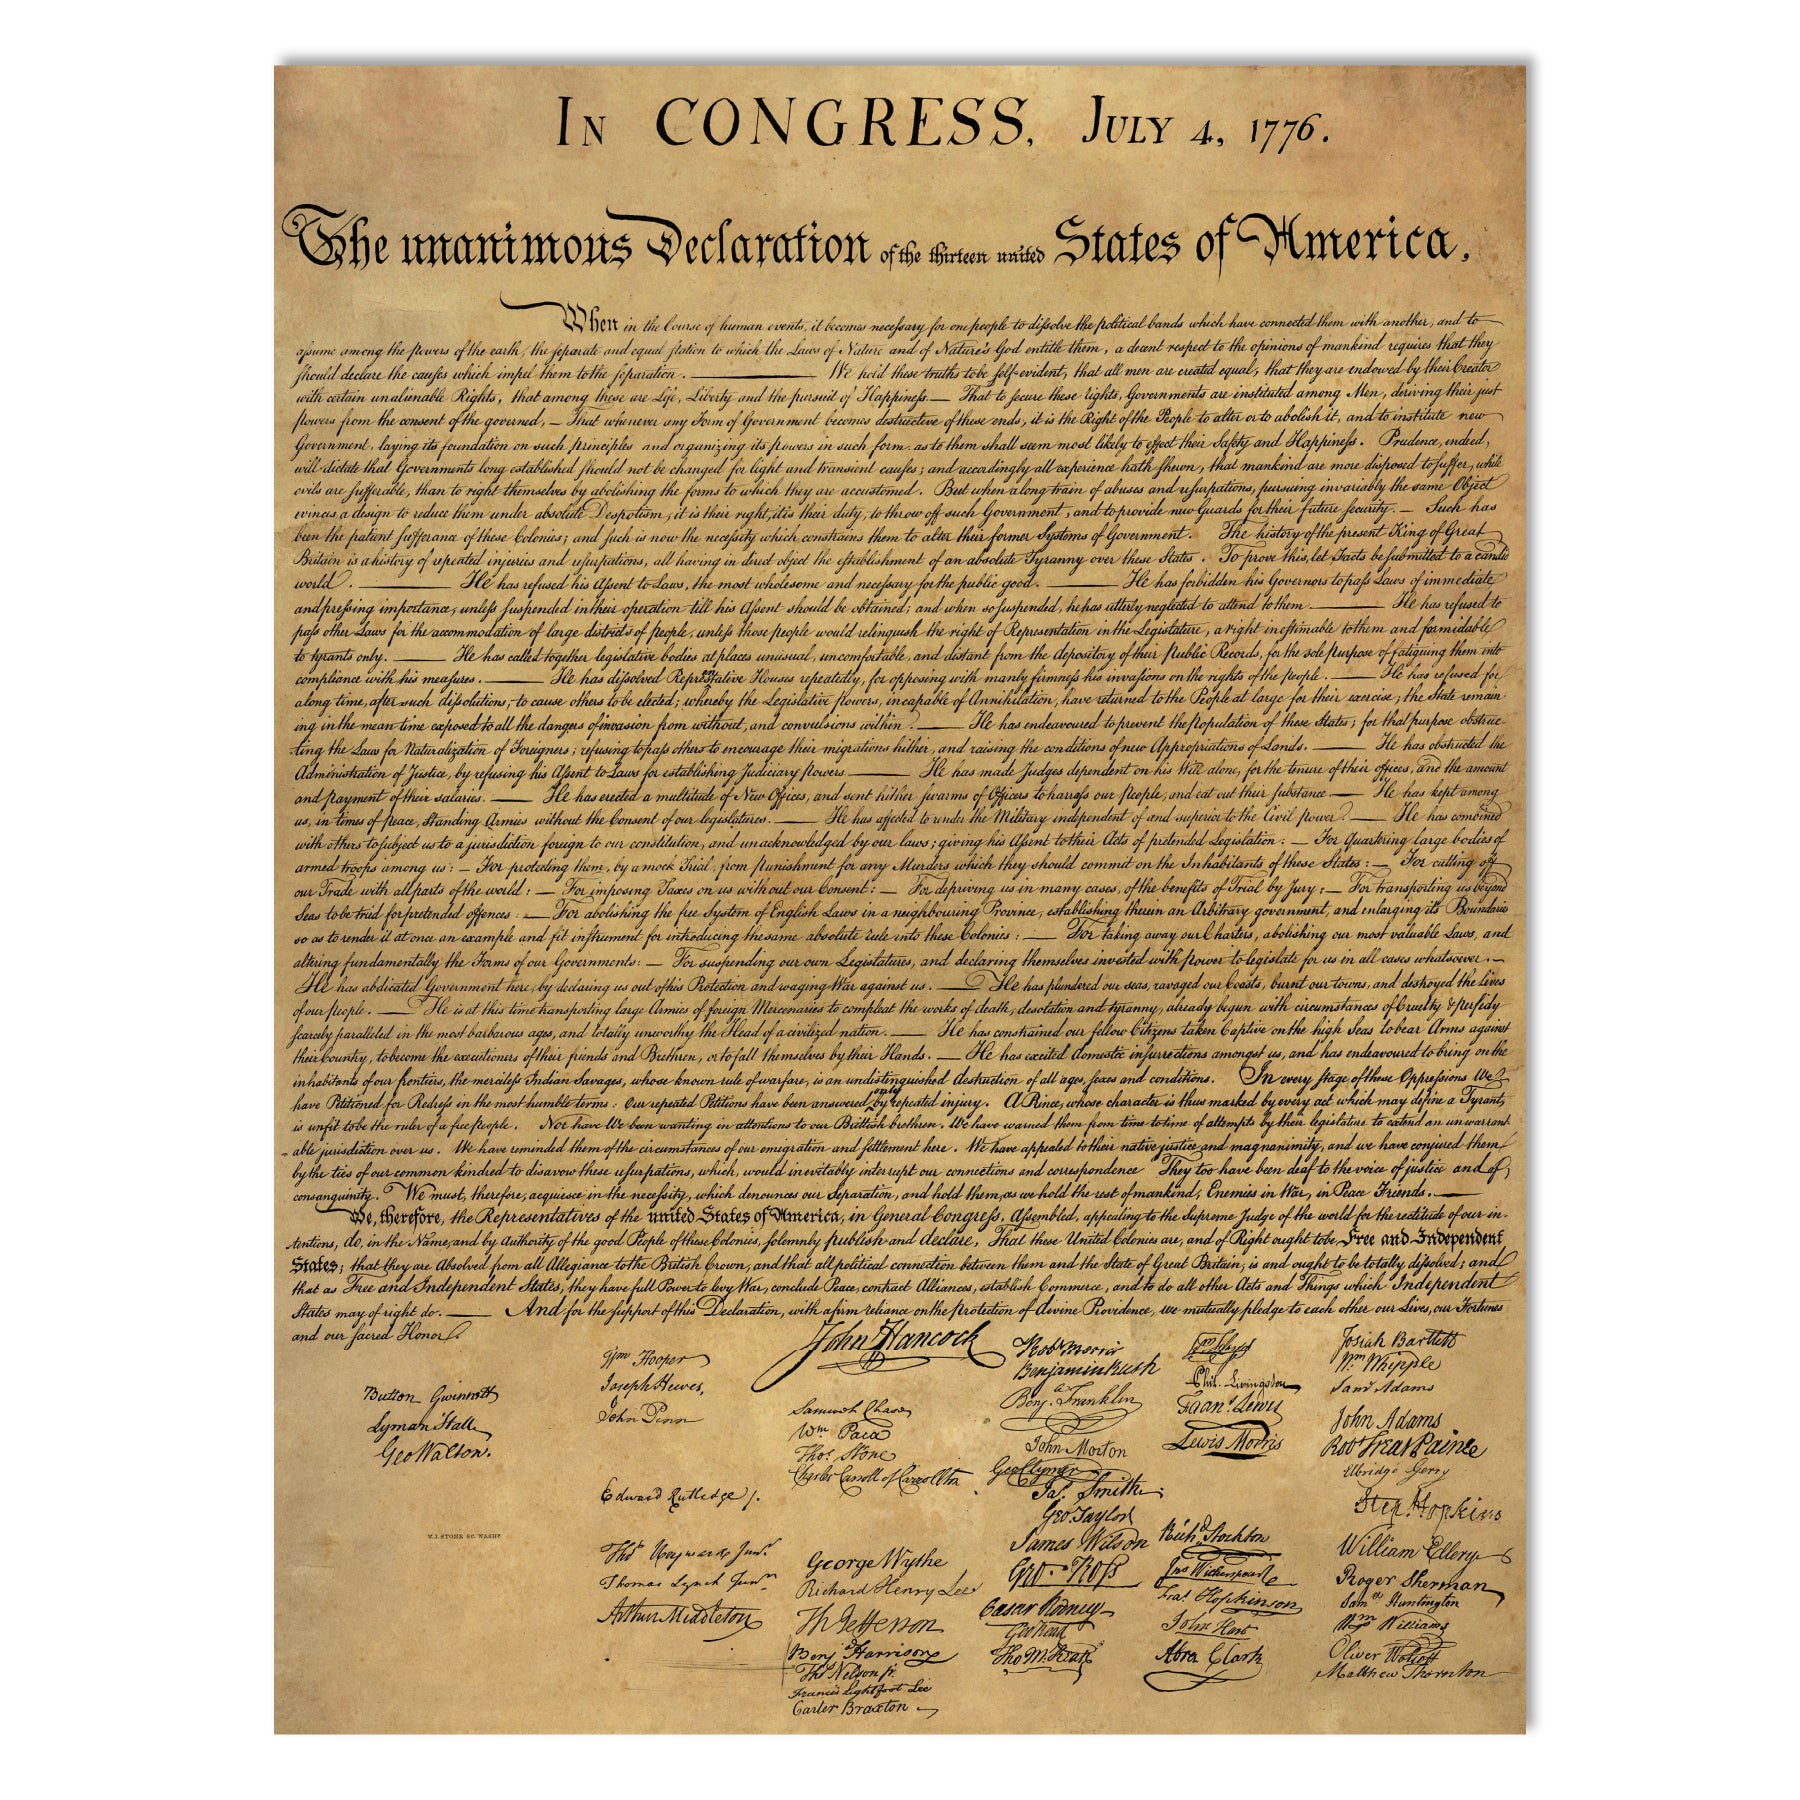 In CONGRESS, July 4, 1776.
The unanimous Declaration of the thirteen united States of America,
When in the Course of human events, it becomes necessary for one people to dissolve the political bands which have connected them with another, and to
assume among the powers of the earth, the separate and equal station to which the Laws of Nature and of Nature's God entitle them, a decent respect to the opinions of mankind requires that they
should declare the causes which impel them to the separation. — We hold these truths to be self-evident, that all men are created equal, that they are endowed by their Creator
with certain unalienable Rights, that among these are Life, Liberty and the pursuit of Happiness. — That to secure these rights, Governments are instituted among Men, deriving their just
powers from the consent of the governed, — That whenever any Form of Government becomes destructive of these ends, it is the Right of the People to alter or to abolish it, and to institute new
Government, laying its foundation on such principles and organizing its powers in such form, as to them shall seem most likely to effect their Safety and Happiness. Prudence, indeed,
will dictate that Governments long established should not be changed for light and transient causes; and accordingly all experience hath shewn, that mankind are more disposed to suffer, while
evils are sufferable, than to right themselves by abolishing the forms to which they are accustomed. But when a long train of abuses and usurpations, pursuing invariably the same Object
evinces a design to reduce them under absolute Despotism, it is their right, it is their duty, to throw off such Government, and to provide new Guards for their future security. — Such has
been the patient sufferance of these Colonies; and such is now the necessity which constrains them to alter their former Systems of Government. The history of the present King of Great
Britain is a history of repeated injuries and usurpations, all having in direct object the establishment of an absolute Tyranny over these States. To prove this, let Facts be submitted to a candid
world. — He has refused his Assent to Laws, the most wholesome and necessary for the public good. — He has forbidden his Governors to pass Laws of immediate
and pressing importance, unless suspended in their operation till his Assent should be obtained; and when so suspended, he has utterly neglected to attend to them. — He has refused to
pass other Laws for the accommodation of large districts of people, unless those people would relinquish the right of Representation in the Legislature, a right inestimable to them and formidable
to tyrants only. — He has called together legislative bodies at places unusual, uncomfortable, and distant from the depository of their Public Records, for the sole purpose of fatiguing them into
compliance with his measures. — He has dissolved Representative Houses repeatedly, for opposing with manly firmness his invasions on the rights of the people. — He has refused for
a long time, after such dissolutions, to cause others to be elected; whereby the Legislative powers, incapable of Annihilation, have returned to the People at large for their exercise; the State remain
ing in the mean time exposed to all the dangers of invasion from without, and convulsions within. — He has endeavoured to prevent the population of these States; for that purpose obstruc-
ting the Laws for Naturalization of Foreigners; refusing to pass others to encourage their migrations hither, and raising the conditions of new Appropriations of Lands. — He has obstructed the
Administration of Justice, by refusing his Assent to Laws for establishing Judiciary powers — He has made Judges dependent on his Will alone, for the tenure of their offices, and the amount
and payment of their salaries. — He has erected a multitude of New Offices, and sent hither swarms of Officers to harrass our people, and eat out their substance — He has kept among
us, in times of peace, Standing Armies without the Consent of our legislatures. — He has affected to render the Military independent of and superior to the Civil power. — He has combined
with others to subject us to a jurisdiction foreign to our constitution, and unacknowledged by our laws; giving his Assent to their Acts of pretended Legislation: — For Quartering large bodies of
armed troops among us: — For protecting them, by a mock Trial, from punishment for any Murders which they should commit on the Inhabitants of these States: — For cutting off
our Trade with all parts of the world: — For imposing Taxes on us without our Consent: — For depriving us in many cases, of the benefits of Trial by Jury: — For transporting us beyond
Seas to be tried for pretended offences: — For abolishing the free System of English Laws in a neighbouring Province, establishing therein an Arbitrary government, and enlarging its Boundaries
so as to render it at once an example and fit instrument for introducing the same absolute rule into these Colonies: — For taking away our Charters, abolishing our most valuable Laws, and
altering fundamentally the Forms of our Governments: — For suspending our own Legislatures, and declaring themselves invested with power to legislate for us in all cases whatsoever. —
He has abdicated Government here, by declaring us out of his Protection and waging War against us. — He has plundered our seas, ravaged our Coasts, burnt our towns, and destroyed the lives
of our people. — He is at this time transporting large Armies of foreign Mercenaries to compleat the works of death, desolation and tyranny, already begun with circumstances of Cruelty & perfidy
scarcely paralleled in the most barbarous ages, and totally unworthy the Head of a civilized nation. — He has constrained our fellow Citizens taken Captive on the high Seas to bear Arms against
their Country, to become the executioners of their friends and Brethren, or to fall themselves by their Hands. — He has excited domestic insurrections amongst us, and has endeavoured to bring on the
inhabitants of our frontiers, the merciless Indian Savages, whose known rule of warfare, is an undistinguished destruction of all ages, sexes and conditions. In every stage of these Oppressions We
have Petitioned for Redress in the most humble terms: Our repeated Petitions have been answered only by repeated injury. A Prince, whose character is thus marked by every act which may define a Tyrant,
is unfit to be the ruler of a free people. Nor have We been wanting in attentions to our Brittish brethren. We have warned them from time to time of attempts by their legislature to extend an unwarrant
-able jurisdiction over us. We have reminded them of the circumstances of our emigration and settlement here. We have appealed to their native justice and magnanimity, and we have conjured them
by the ties of our common kindred to disavow these usurpations, which, would inevitably interrupt our connections and correspondence They too have been deaf to the voice of justice and of
consanguinity. We must, therefore, acquiesce in the necessity, which denounces our Separation, and hold them, as we hold the rest of mankind, Enemies in War, in Peace Friends. —
We, therefore, the Representatives of the united States of America, in General Congress, Assembled, appealing to the Supreme Judge of the world for the rectitude of our in-
tentions, do, in the Name, and by Authority of the good People of these Colonies, solemnly publish and declare, That these United Colonies are, and of Right ought to be Free and Independent
States; that they are Absolved from all Allegiance to the British Crown, and that all political connection between them and the State of Great Britain, is and ought to be totally dissolved; and
that as Free and Independent States, they have full Power to levy War, conclude Peace, contract Alliances, establish Commerce, and to do all other Acts and Things which Independent
States may of right do. — And for the support of this Declaration, with a firm reliance on the protection of divine Providence, we mutually pledge to each other our Lives, our Fortunes
and our sacred Honor.
Button Gwinnett
Lyman Hall
Geo Walton.
W.J. STONE SC. WASHN
Wm Hooper
Joseph Hewes,
John Penn
Edward Rutledge /.
Thos Heyward Junr.
Thomas Lynch Junr.
Arthur Middleton
John Hancock
Samuel Chase
Wm. Paca
Thos. Stone
Charles Carroll of Carrollton
George Wythe
Richard Henry Lee
Th Jefferson
Benj Harrison
Thos Nelson jr.
Francis Lightfoot Lee
Carter Braxton
Robt Morris
Benjamin Rush
Benj. Franklin
John Morton
Geo Clymer
Jas. Smith
Geo. Taylor
James Wilson
Geo. Ross
Caesar Rodney
Geo Read
Tho M:Kean
Wm Floyd
Phil. Livingston
Frans. Lewis
Lewis Morris
Richd. Stockton
Jno Witherspoon
Fras. Hopkinson
John Hart
Abra Clark
Josiah Bartlett
Wm. Whipple
Saml Adams
John Adams
Robt Treat Paine
Elbridge Gerry
Step. Hopkins
William Ellery
Roger Sherman
Samel Huntington
Wm Williams
Oliver Wolcott
Matthew Thornton